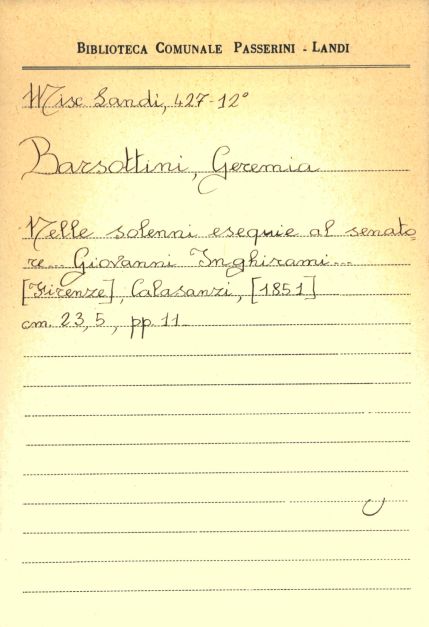 BIBLIOTECA COMUNALE PASSERINI - LANDI
Misc Landi, 427-12°
Barsottini, Geremia
Nelle solenni esequie al senato=
re... Giovanni Inghirami...
[Firenze], Calasanzi, [1851]
cm. 23,5, pp. 11